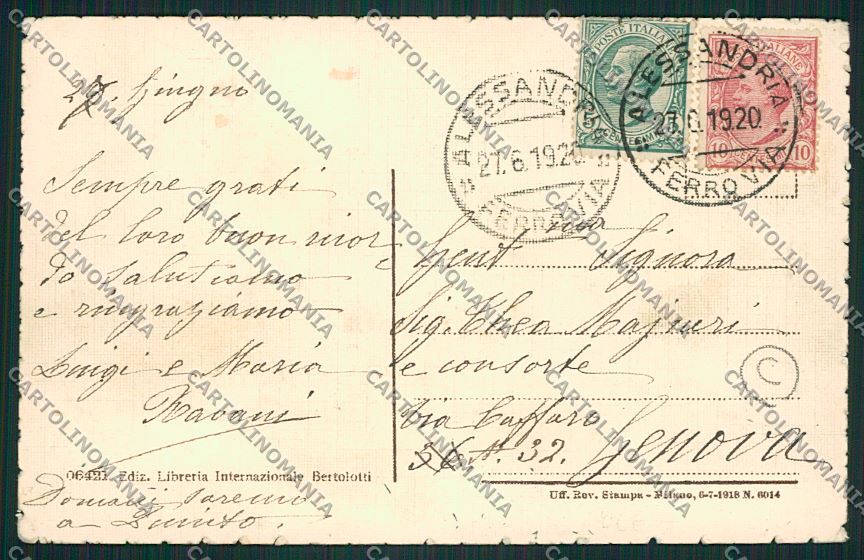 Giugno
Sempre grati
del loro buon ricor-
do salutiamo
e ringraziamo
Luigi e Maria
Ravani
06421. Ediz. Libreria Internazionale Bertolotti
Domani saremo
a
POSTE ITALIANE
5
10 10
ALESSANDRIA
27.6.1920
FERROVIA
ALESSANDRIA
27.6.1920
FERROVIA
Gent.ma Signora
Sig. Thea
e consorte
Via Caffaro
N. 32. Genova
C
Uff. Rev. Stampa - Milano, 6-7-1918 N. 6014
CARTOLINOMANIA